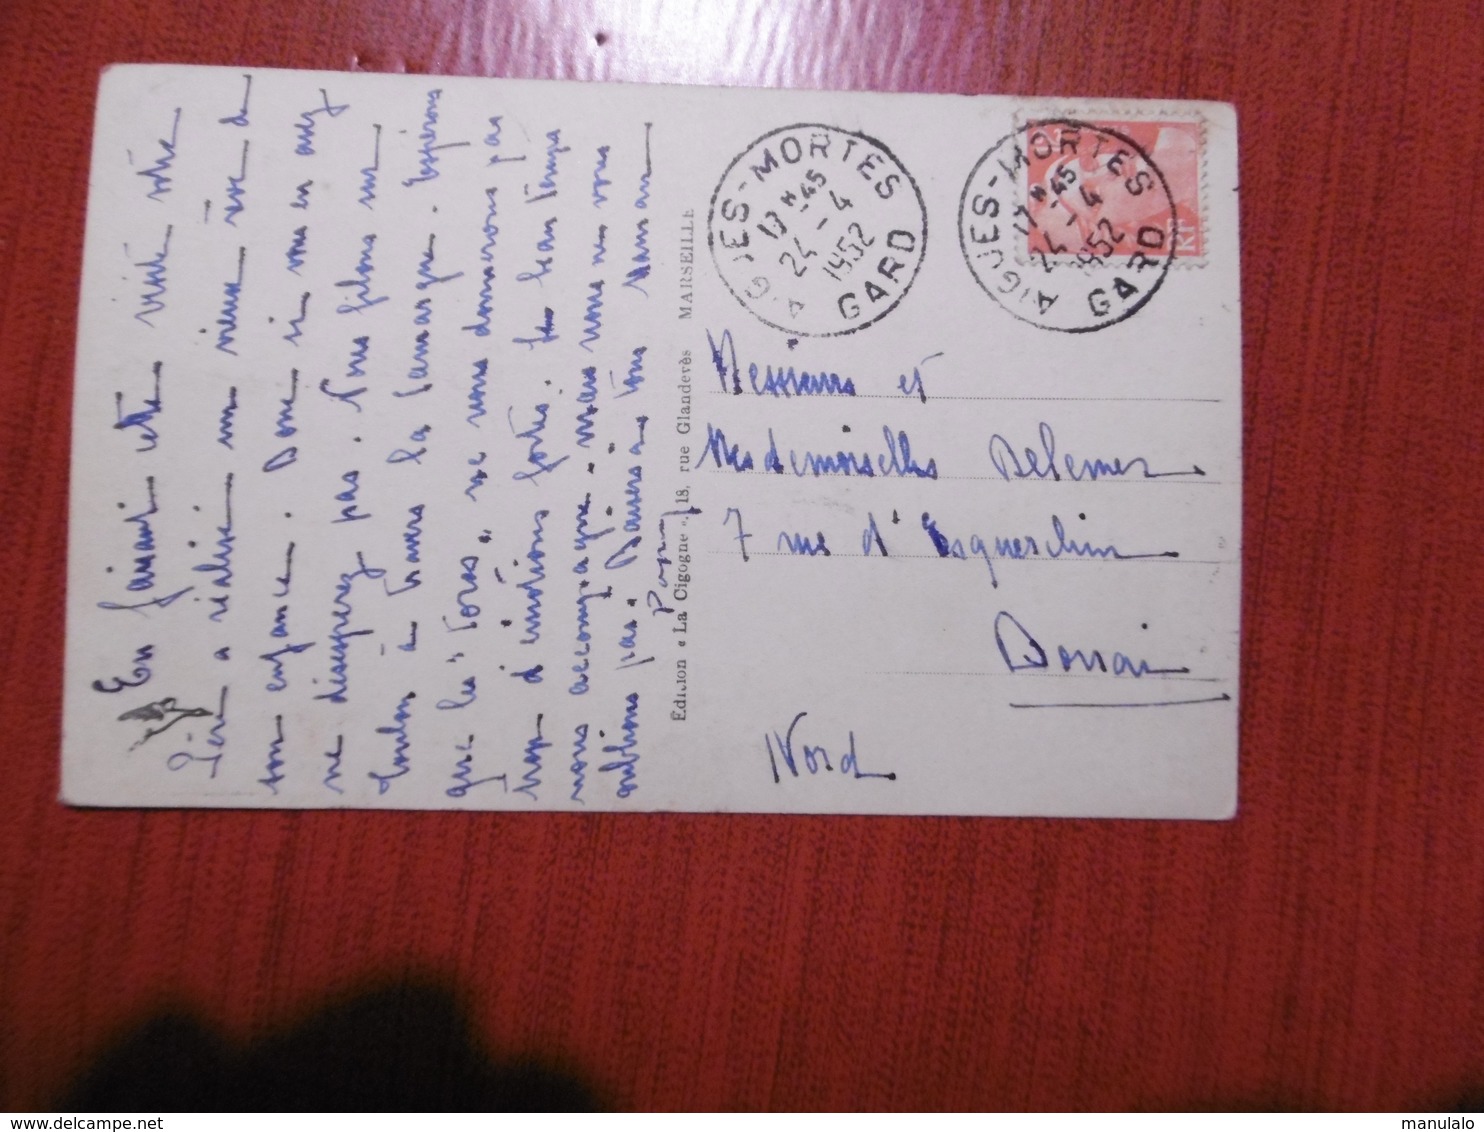 En faisant cette visite votre
Père a réalisé un vieux rêve de
son enfance. Donc si vous en avez
ne désespérez pas. Nous filons sur
Toulon à travers la Camargue. Espérons
que les "Toros" ne nous donnerons pas
trop d'émotions fortes. Le beau temps
nous accompagne - mais nous ne vous
oublions pas. Baisers à tous Maman
Papa
Edition « La Cigogne », 18, rue Glandevès MARSEILLE
AIGUES-MORTES
17 H -45
24 - 4
1952
GARD
AIGUES-MORTES
17 H -45
24 - 4
1952
GARD
RF
Messieurs et
Mesdemoiselles Delemer
7 rue d'Esquerchin
Douai
Nord
manulalo
www.delcampe.net